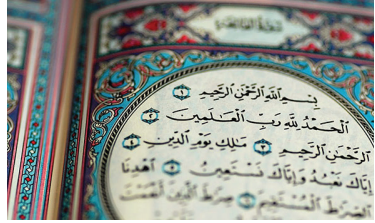 سُورَةُ الفَاتِحَةِ
بِسْمِ اللَّهِ الرَّحْمَٰنِ الرَّحِيمِ ١
الْحَمْدُ لِلَّهِ رَبِّ الْعَالَمِينَ ٢
الرَّحْمَٰنِ الرَّحِيمِ ٣ مَٰلِكِ يَوْمِ الدِّينِ ٤
إِيَّاكَ نَعْبُدُ وَإِيَّاكَ نَسْتَعِينُ ٥ اهْدِنَا
الصِّرَٰطَ الْمُسْتَقِيمَ ٦ صِرَٰطَ الَّذِينَ أَنْعَمْتَ